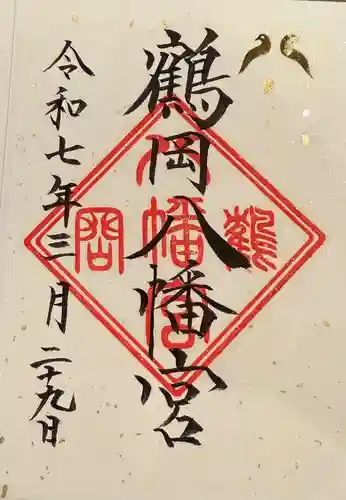 鶴岡八幡宮
令和七年三月二十九日
鶴
岡
八幡宮